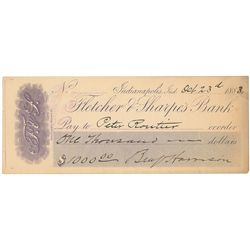 No
Indianapolis, Ind. Oct 23d 1883
Fletcher & Sharpe's Bank
Pay to Peter Routier or order
One Thousand dollars
$1000.00 Benj Harrison